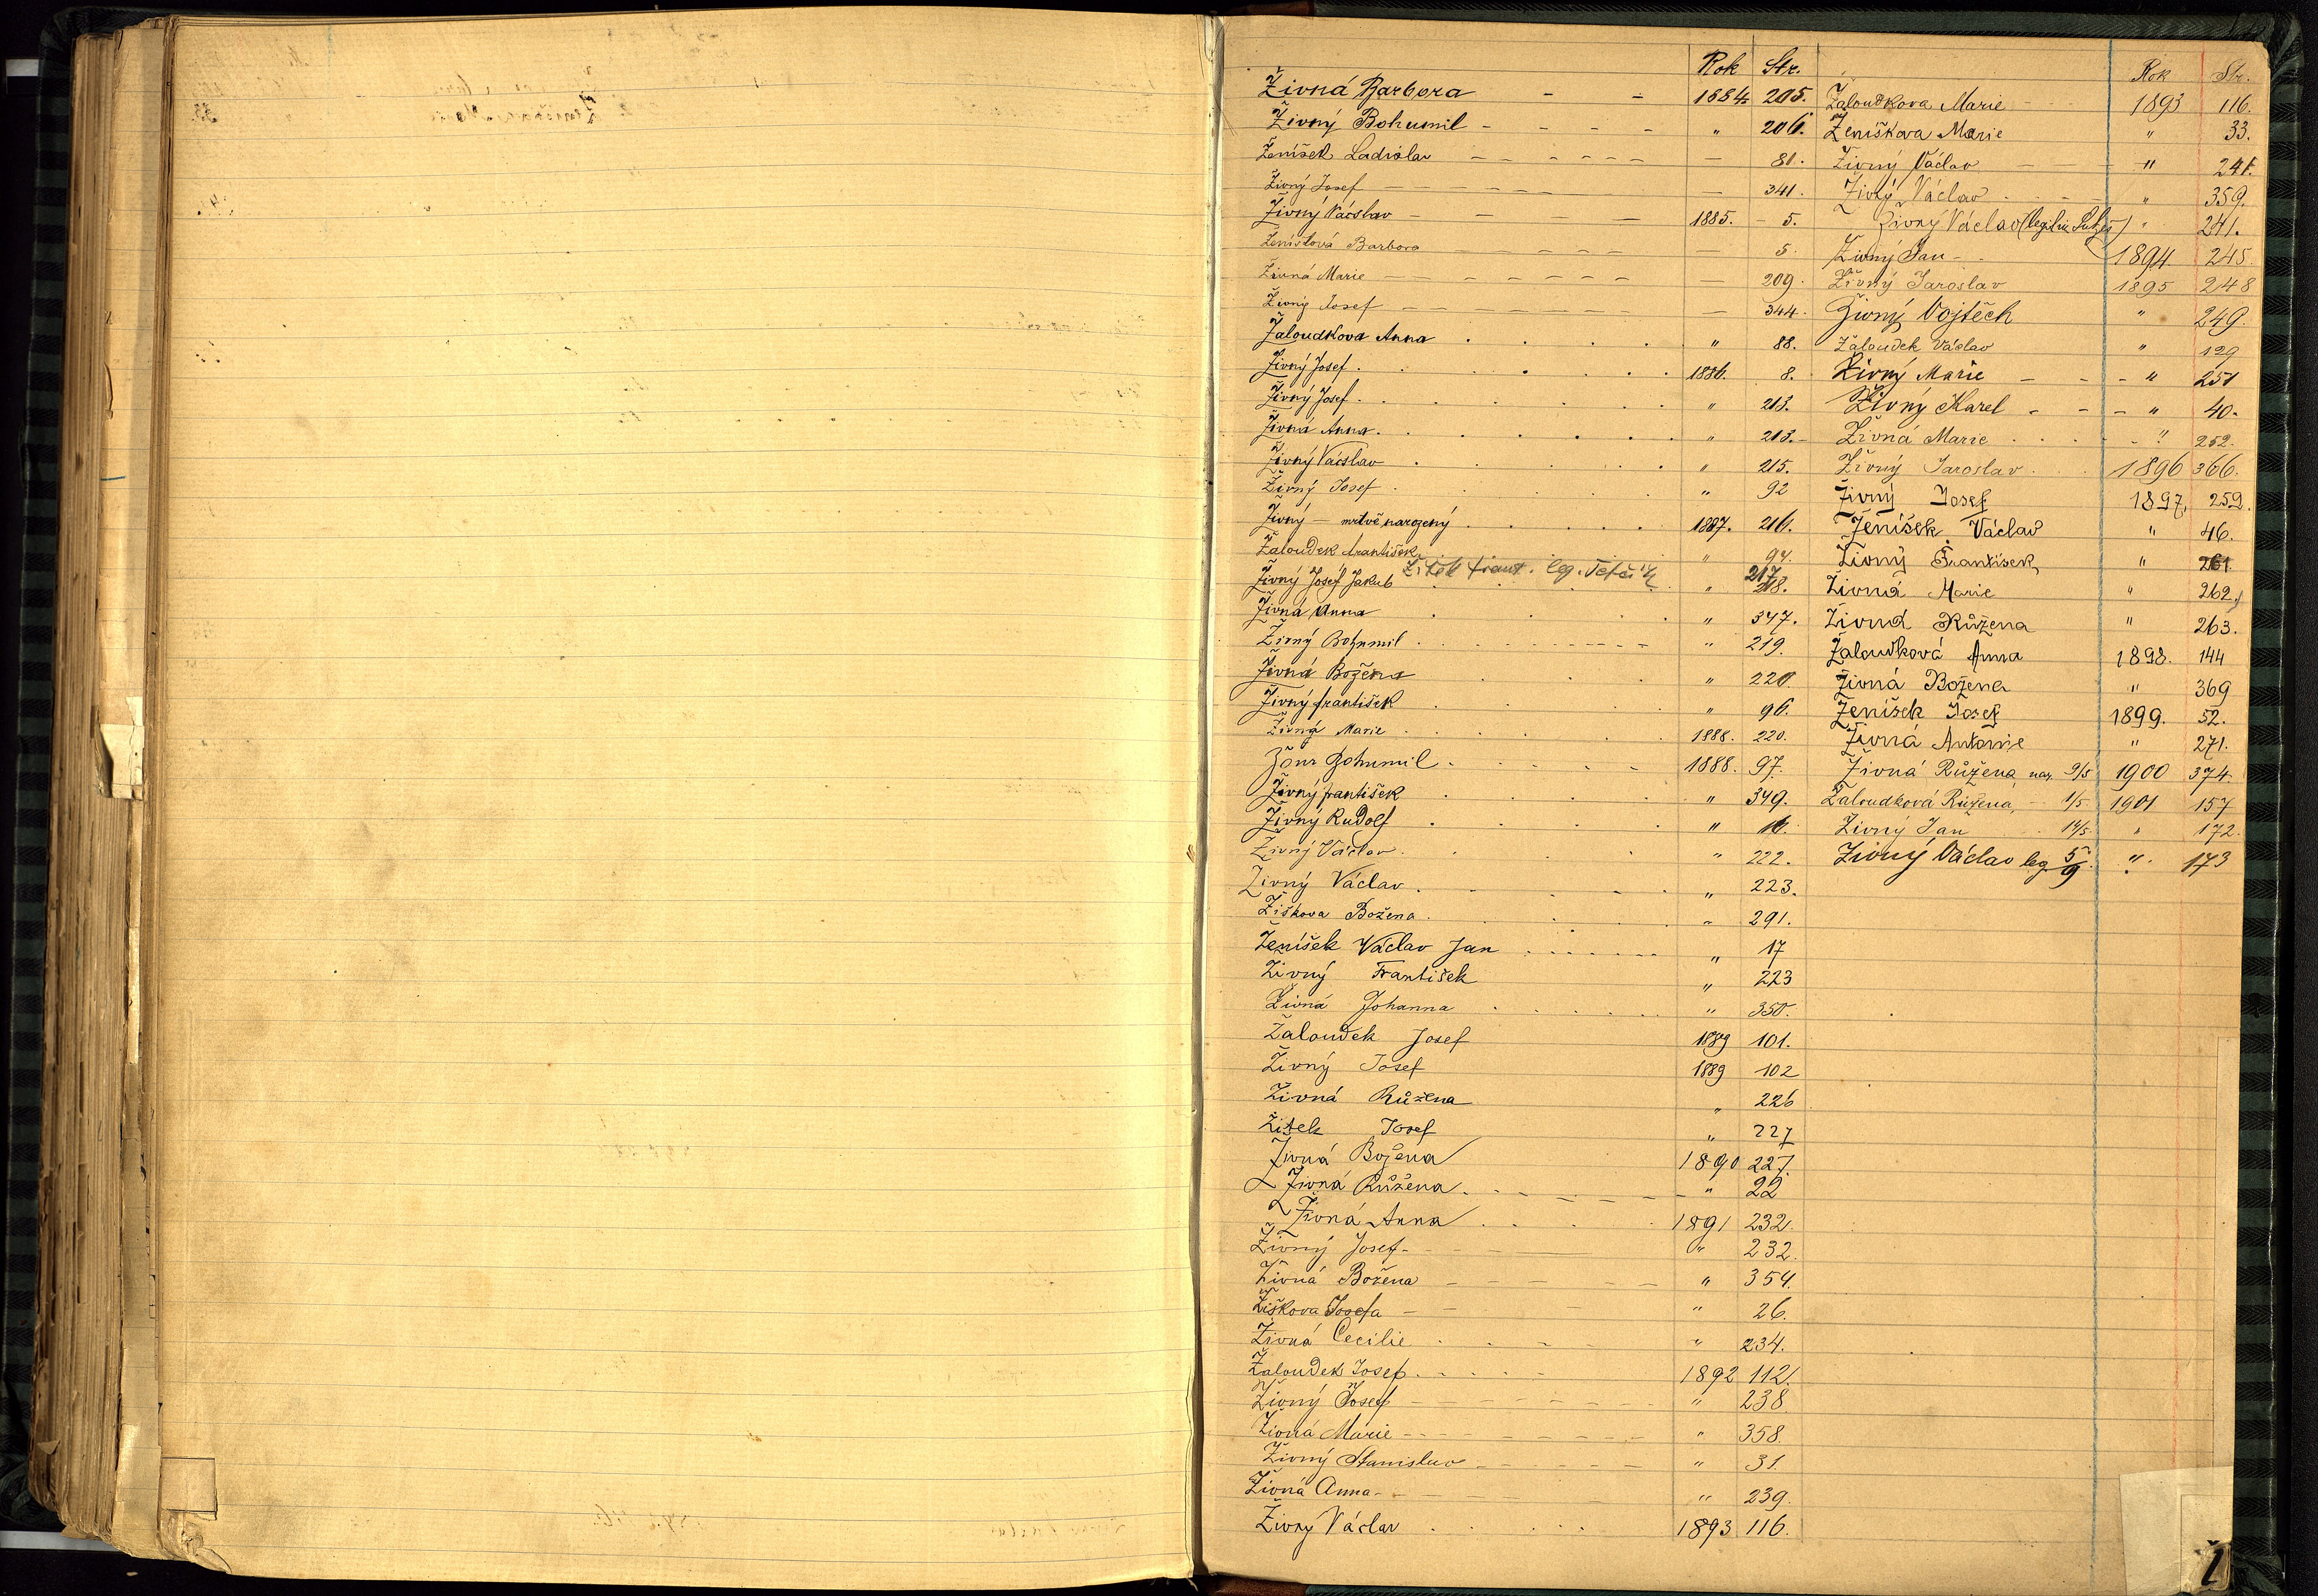 Rok Str.
Živná Barbora - - 1884 205.
Živný Bohumil - - - - " 206.
Ženíšek Ladislav - - - - - - — 81.
Živný Josef - - - - - - — 341.
Živný Václav - - - - 1885. - 5.
Ženíšková Barbora - - - - — 5.
Živná Marie - - - - - - — 209.
Živný Josef - - - - - - — 344.
Žaloudkova Anna . . . . " 88.
Živný Josef . . . . . . 1886. 8.
Živný Josef . . . . . . " 213.
Živná Anna . . . . . . " 213.-
Živný Václav . . . . . " 215.
Živný Josef . . . . . " 92
Živný — mrtvě narozený . . . . . 1887. 216.
Žaloudek František " 94.
Žitek Frant. leg. 217
Živný Josef Jakub " 218.
Živná Anna . . . . " 347.
Živný Bohumil . . . . " 219.
Živná Božena . . . " 220.
Živný František . . . . " 96.
Živná Marie . . . . . . 1888. 220.
Žour Bohumil . . . . . 1888. 97.
Živný František . . . . " 349.
Živný Rudolf . . . . . " 16.
Živný Václav . . . . . " 222.
Živný Václav . . . . . " 223.
Žiškova Božena . . . . " 291.
Ženíšek Václav Jan . . . . . . " 17
Živný František " 223
Živná Johanna . . . . . " 350.
Žaloudek Josef 1889 101.
Živný Josef 1889 102
Živná Růžena " 226
Žitek Josef " 227
Živná Božena 1890 227.
Živná Růžena . - - - - - " 22
Živná Anna . . . . 1891 232.
Živný Josef - - - " 232.
Živná Božena - - - - - - " 354.
Žiškova Josefa - - - " 26.
Živná Cecilie . . - - " 234.
Žaloudek Josef . . . - - 1892 112.
Živný Josef - - - - - - - " 238
Živná Marie - - - - - - - " 358.
Živný Stanislav - - - - - " 31.
Živná Anna - - - - - - " 239.
Živný Václav . . . . 1893 116.
Rok Str.
Žaloudkova Marie - 1893 116.
Ženíškova Marie " 33.
Živný Václav - - " 241.
Živný Václav . . - - " 359.
Živný Václav (legitim. ) " 241.
Živný Jan - . 1894 245.
Živný Jaroslav 1895 248
Živný Vojtěch " 249.
Žaloudek Václav " 129
Živný Marie - - - " 251
Živný Karel - - - " 40.
Živná Marie . . . - " 252.
Živný Jaroslav . . 1896 366.
Živný Josef 1897, 259.
Ženíšek Václav " 46.
Živný František " 261.
Živná Marie " 262.
Živná Růžena " 263.
Žaloudková Anna 1898. 144
Živná Božena " 369
Ženíšek Josef 1899. 52.
Živná Antonie " 271.
Živná Růžena nar. 9/5 1900 374.
Žaloudková Růžena, - 1/5 1901 157
Živný Jan . . 14/5 " 172.
Živný Václav leg 5/9. " 173
Ž